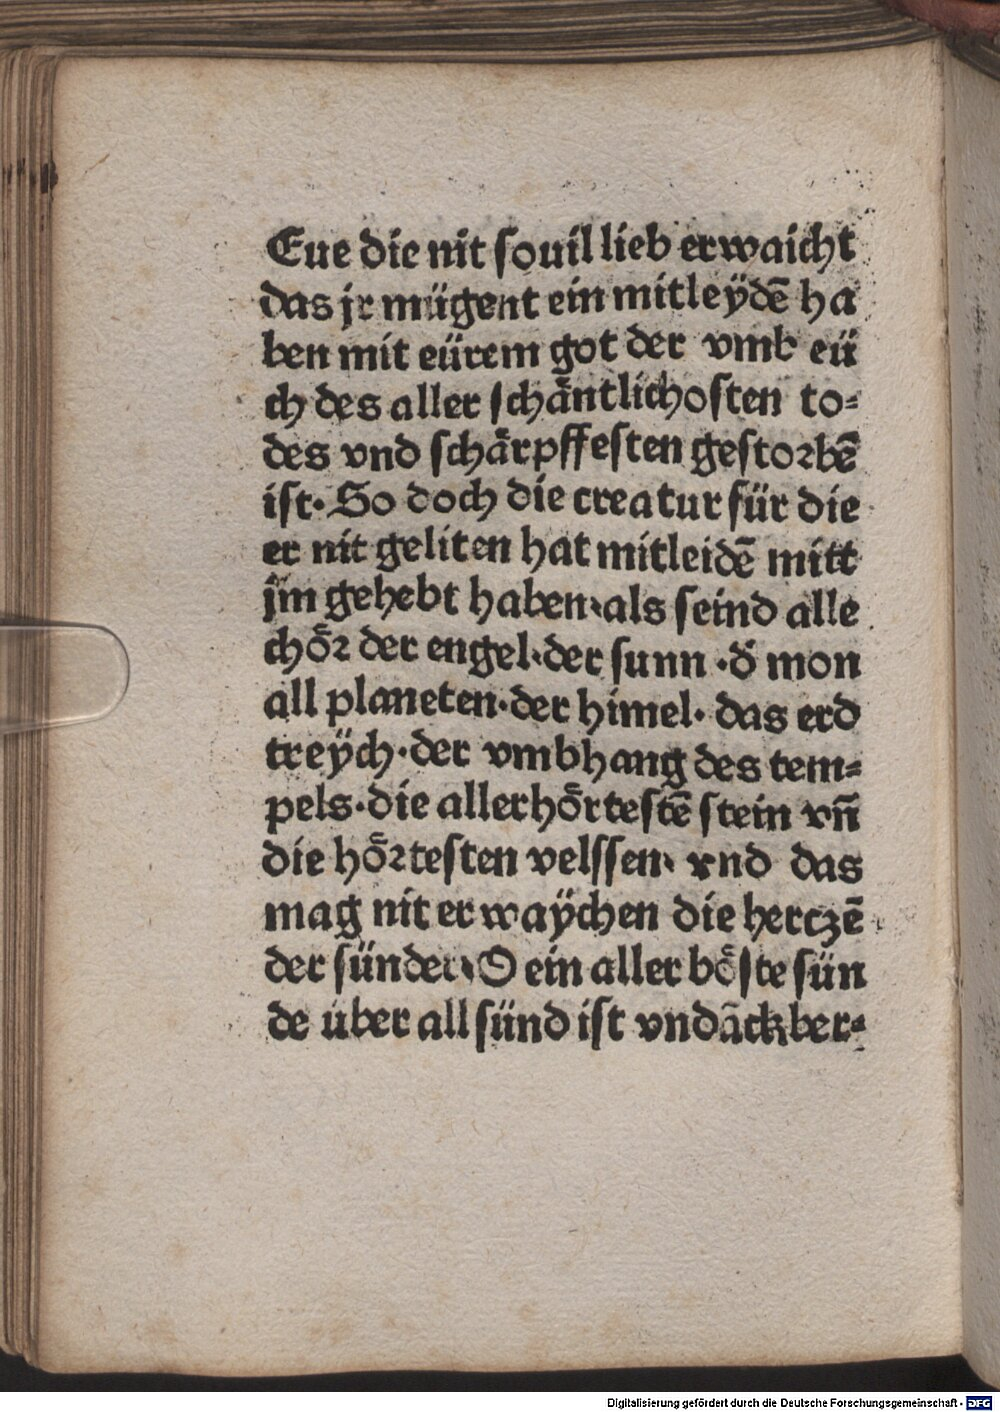 Eue die nit ſouil lieb erwaicht
das jr mügent ein mitleÿdē ha
ben mit eürem got der vmb eü
ch des aller ſchäntlichoſten to⸗
des vnd ſchärpffeſten geſtorbē
iſt· So doch die creatur für die
er nit geliten hat mitleidē mitt
jm gehebt haben·als ſeind alle
chöꝛ der engel·der ſunn ·d̓ mon
all planeten·der himel· das erd
treÿch·der vmbhang des tem⸗
pels·die allerhörteſtē ſtein vn̄
die höꝛteſten velſſen· vnd das
mag nit erwaÿchen die hertzē
der ſünder·O ein aller böſte ſün
de über all ſünd iſt vndāckber⸗
Digitalisierung gefördert durch die Deutsche Forschungsgemeinschaft - DFG